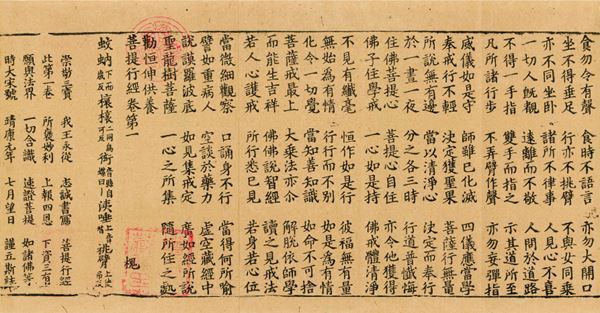 食勿令有聲 食時不語言 亦勿大開口
坐不得垂足 行亦不挑臂 不與女同乘
亦不同坐卧 諸所不律事 人見心不喜
一切人既覩 遠離而不敬 人問於道路
不得一手指 雙手而指之 示其道所至
凡所諸行步 不弄臂作聲 亦勿妄彈指
威儀如是守 師雖已化滅 四儀應當學
奉戒行不輕 決定獲聖果 菩薩行無量
所說無有邊 當以清淨心 決定而奉行
於一晝一夜 分之各三時 行道普懺悔
住佛菩提心 菩提心自住 亦令他獲得
佛子住學戒 如是持 佛戒體清淨
不見有纖毫 恒作如是行 彼福無有量
無始為有情 行行而不別 如是為有情
化令一切覺 當知善知識 如命不可捨
菩薩戒最上 大乘法亦尒 解脫依師學
而能生吉祥 佛佛說智經 讀之見戒法
若人心護戒 所行悉已見 若身若心位
當微細觀察 口誦身不行 當得何所喻
譬如重病人 空談於藥力 虛空藏經中
說謨羅波底 如見集戒定 廣如經所說
聖龍樹菩薩 一心之所集 隨所住之處
勤恒伸供養
菩提行經卷第一 槐
蚊蚋 挑臂
崇勛三寶 我王永從 志誠書寫 菩提行經
此第一卷 所褒妙利 上報四恩 下資三有
願與法界 一切含識 速證菩提 如諸佛等
時大宋號 靖康元年 七月望日 謹立斯誌